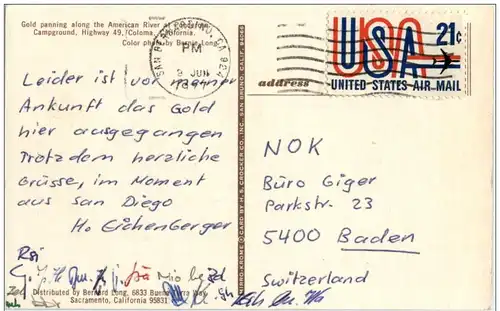 Gold panning along the American River at
Campground, Highway 49, Coloma, California.
Color photo by Bernie Long
SAN BERNARDINO, CA 924
PM
2 JUN
address
USA 21c
UNITED STATES AIR MAIL
Leider ist vor meiner
Ankunft das Gold
hier ausgegangen
Trotzdem herzliche
Grüsse, im Moment
aus San Diego
H. Eichenberger
NOK
Büro Giger
Parkstr. 23
5400 Baden
Switzerland
MIRRO-KROME ® CARD BY H. S. CROCKER CO., INC. SAN BRUNO, CALIF. 94066
Distributed by Bernard Long, 6833 Way
Sacramento, California 95831